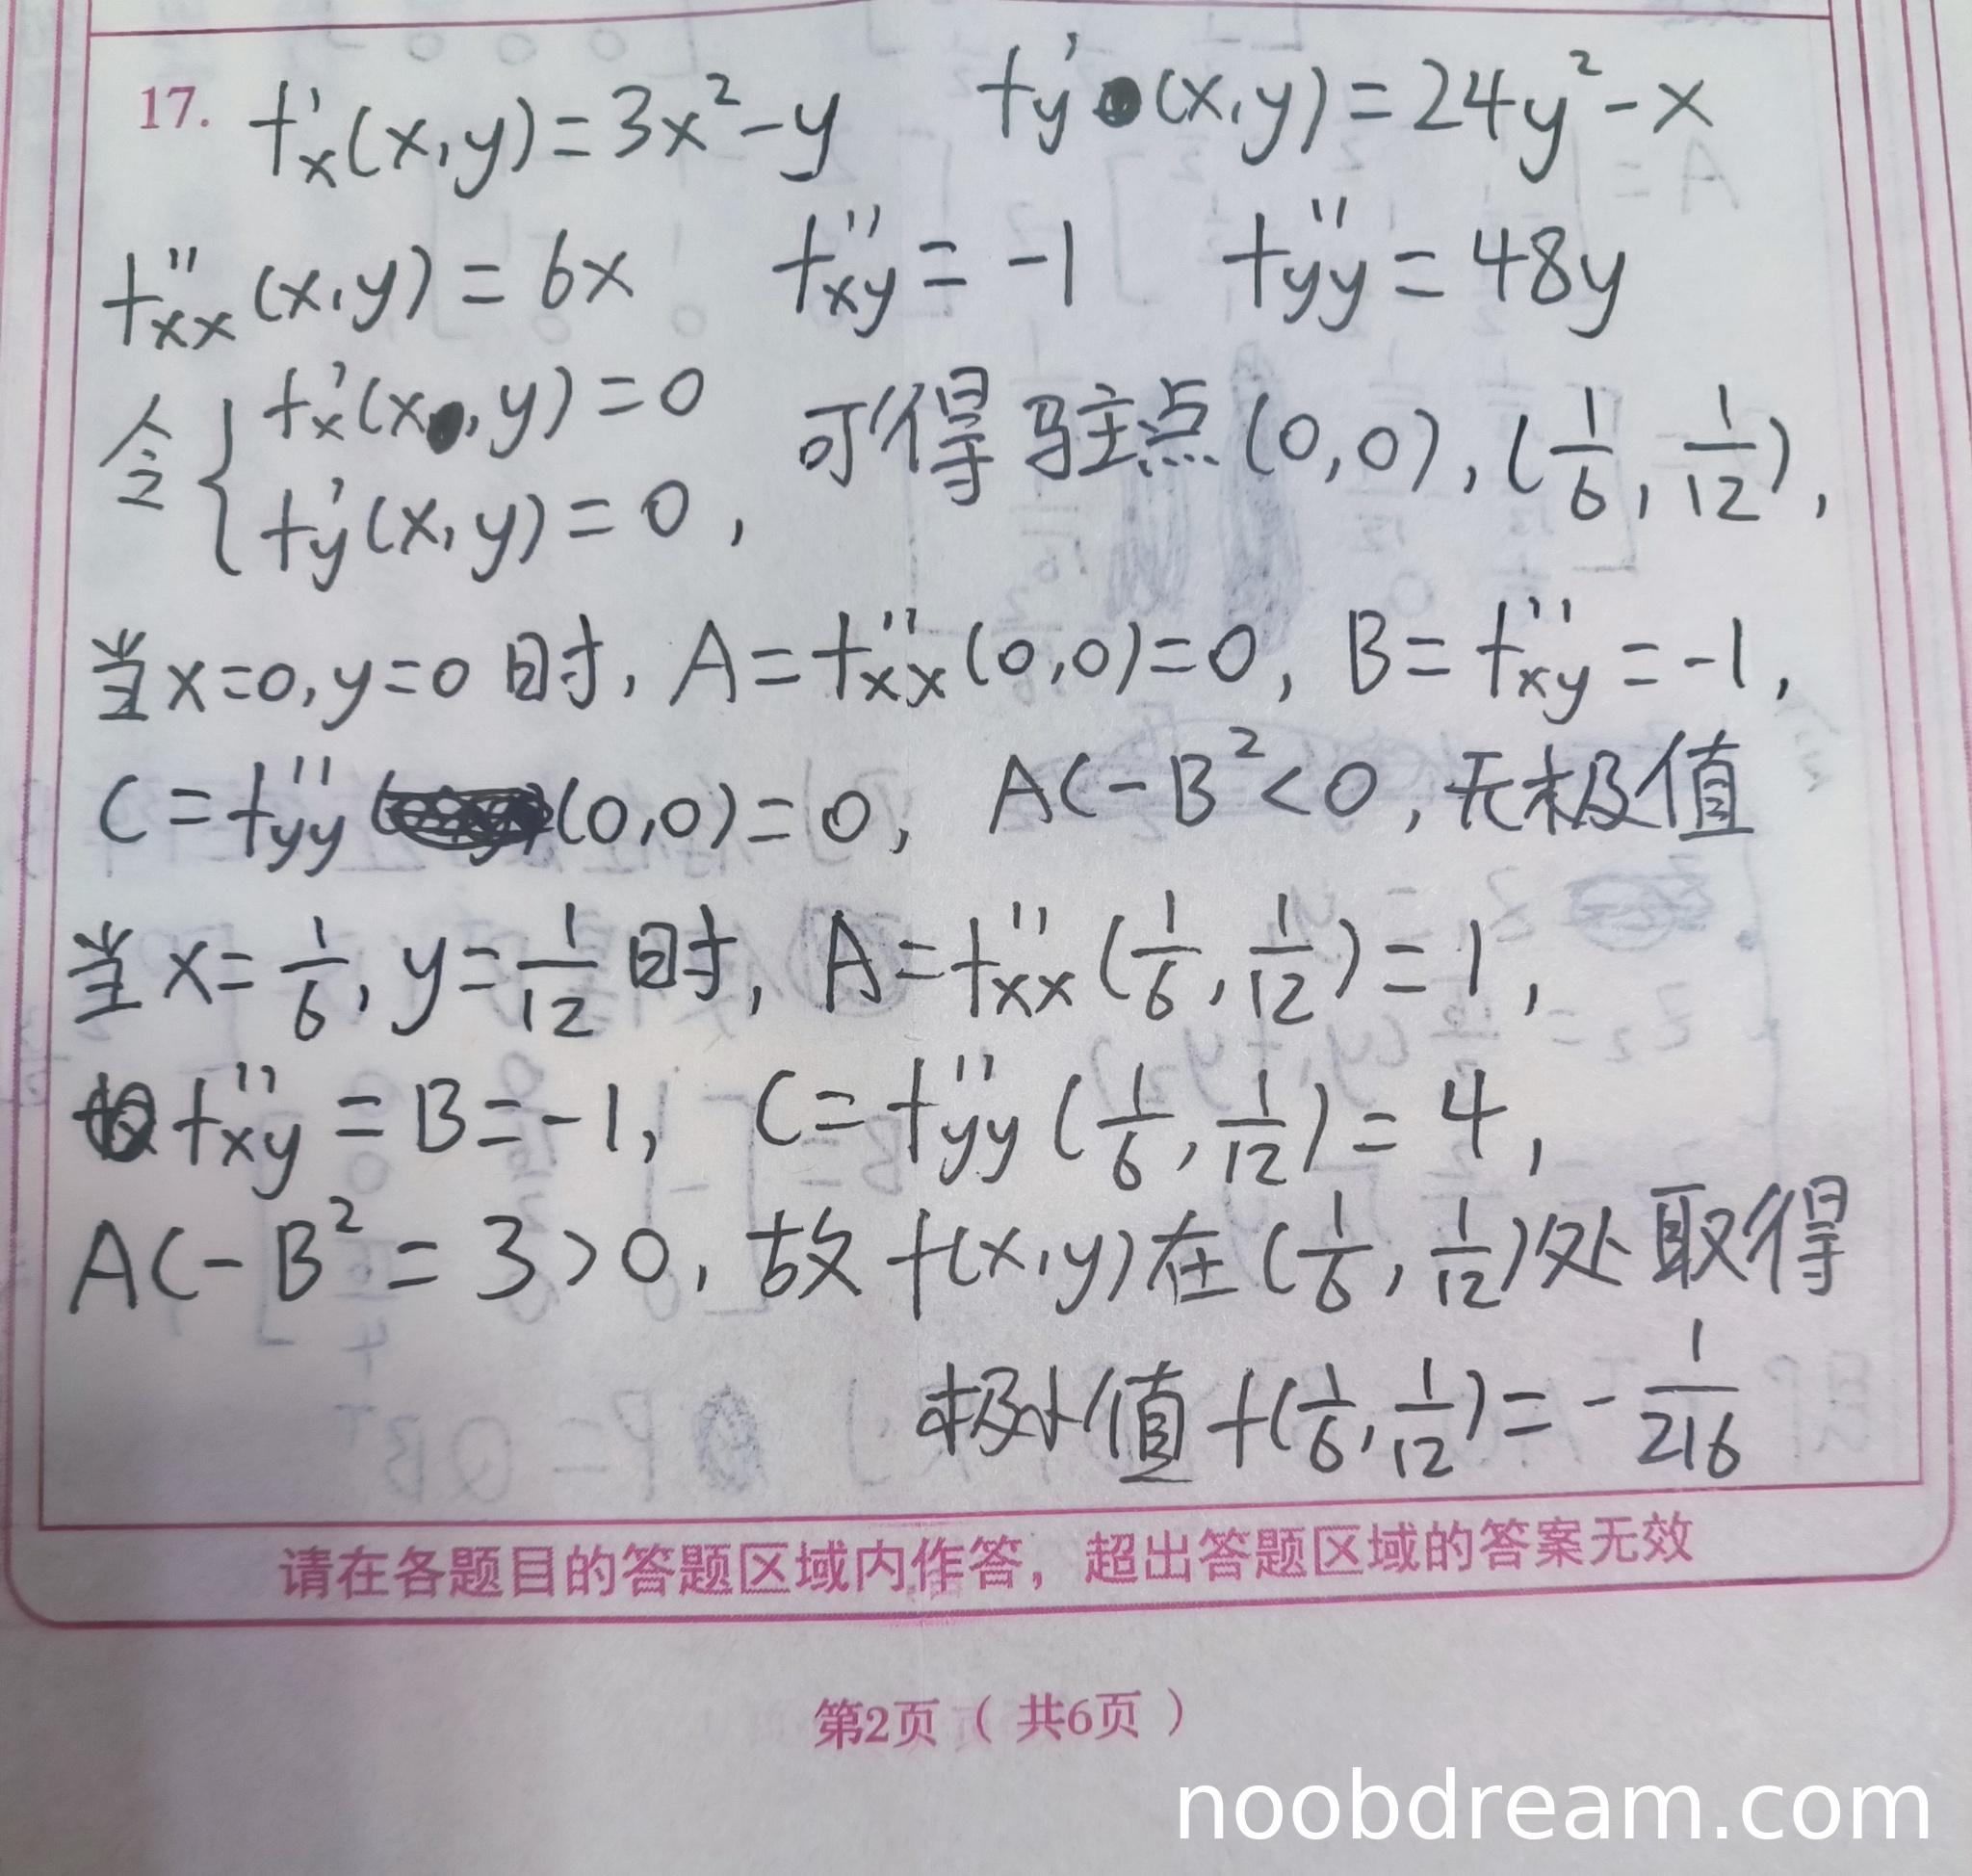 17. f'x(x,y)=3x²-y f'y(x,y)=24y²-x
f''xx(x,y)=6x f''xy=-1 f''yy=48y
令{f'x(x,y)=0 f'y(x,y)=0, 可得驻点(0,0),(1/6,1/12),
当x=0,y=0时, A=f''xx(0,0)=0, B=f''xy=-1,
C=f''yy(0,0)=0, AC-B²<0,无极值
当x=1/6,y=1/12时, A=f''xx(1/6,1/12)=1,
f''xy=B=-1, C=f''yy(1/6,1/12)=4,
AC-B²=3>0,故f(x,y)在(1/6,1/12)处取得
极小值f(1/6,1/12)=-1/216
请在各题目的答题区域内作答，超出答题区域的答案无效
第2页（共6页）
noobdream.com